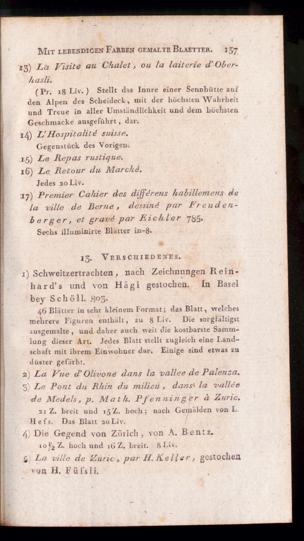 MIT LEBENDIGEN FARBEN GEMALTE BLAETTER. 157
13) La Visite au Chalet, ou la laiterie d'Ober-
hasli.
(Pr. 18 Liv.) Stellt das Innre einer Sennhütte auf
den Alpen des Scheideck, mit der höchsten Wahrheit
und Treue in aller Umständlichkeit und dem höchsten
Geschmacke ausgeführt, dar.
14) L'Hospitalité suisse.
Gegenstück des Vorigen.
15) Le Repas rustique.
16) Le Retour du Marché.
Jedes 20 Liv.
17) Premier Cahier des différens habillemens de
la ville de Berne, dessiné par Freuden-
berger, et gravé par Eichler 785.
Sechs illuminirte Blätter in-8.
13. VERSCHIEDENES.
1) Schweitzertrachten, nach Zeichnungen Rein-
hard's und von Hägi gestochen. In Basel
bey Schöll. 803.
46 Blätter in sehr kleinem Format; das Blatt, welches
mehrere Figuren enthält, zu 8 Liv. Die sorgfältigst
ausgemalte, und daher auch weit die kostbarste Samm-
lung dieser Art. Jedes Blatt stellt zugleich eine Land-
schaft mit ihrem Einwohner dar. Einige sind etwas zu
düster gefärbt.
2) La Vue d'Olivone dans la vallée de Palenza.
3) Le Pont du Rhin du milieu, dans la vallée
de Medels, p. Math. Pfenninger à Zuric.
21 Z. breit und 15 Z. hoch; nach Gemälden von L.
Hefs. Das Blatt 20 Liv.
4) Die Gegend von Zürich, von A. Bentz.
10½ Z. hoch und 16 Z. breit. 8 Liv.
5) La ville de Zuric, par H. Keller, gestochen
von H. Füfsli.